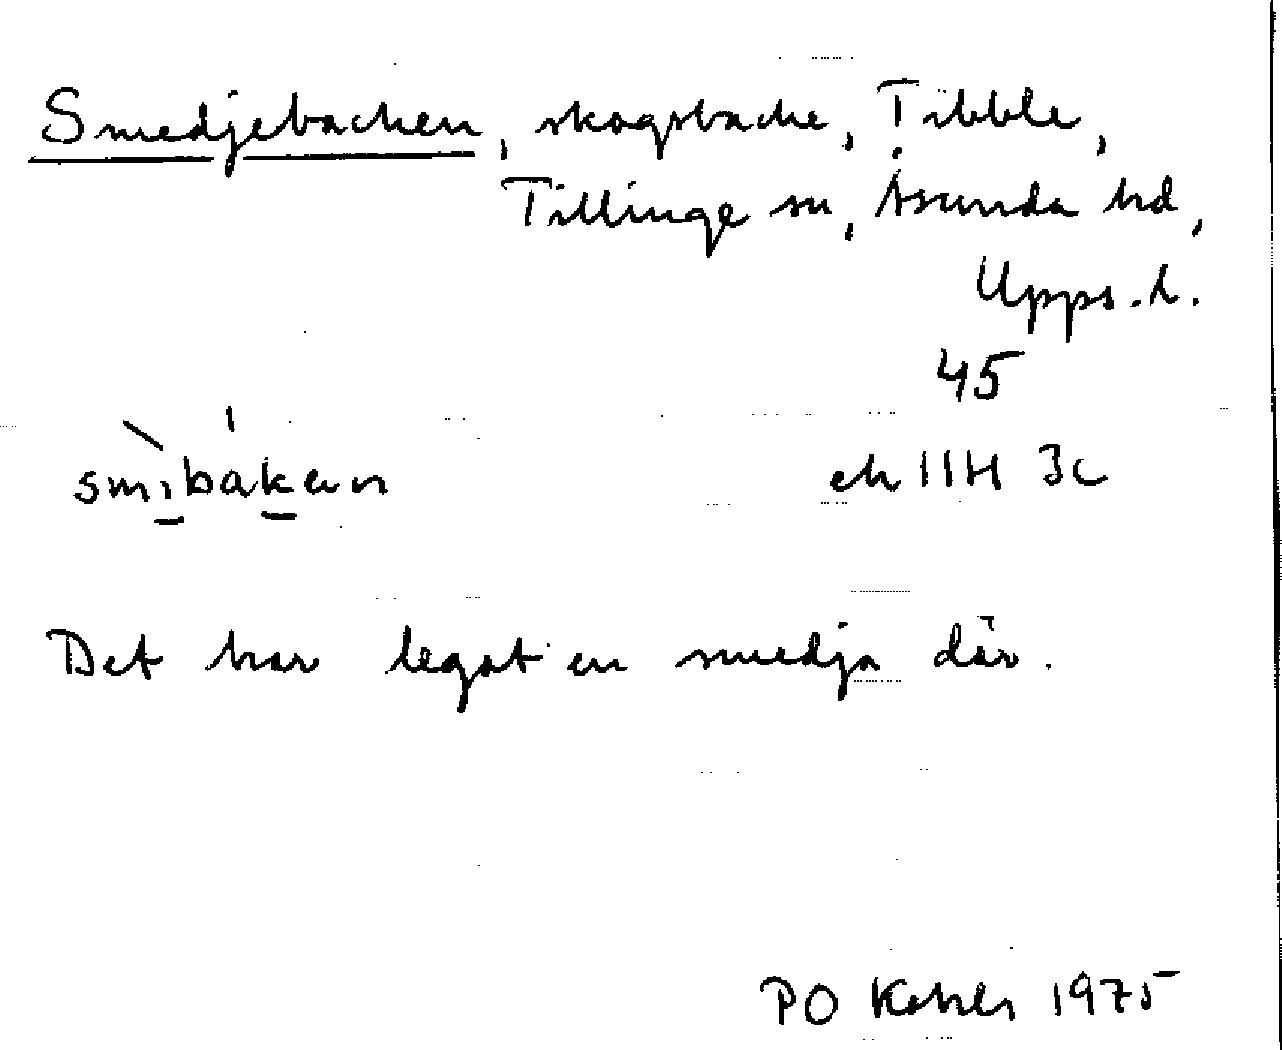 Smedjebacken, skogsbacke, Tibble,
Tillinge sn, Åsunda hd,
Upps. l.
45
smìbákan
ek 11H 3c
Det har legat en smedja där.
PO 1975